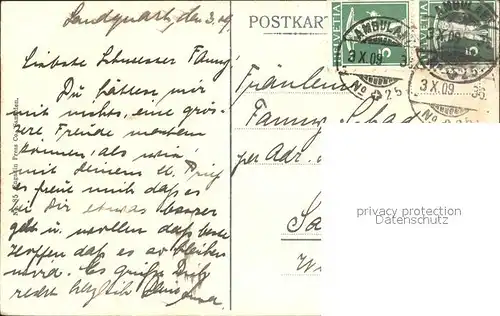 Landquart, den 3. X. 09
Liebste Schwester Fanny!
Du hättest mir
mit nichts, eine grös-
sere Freude machen
können, als wie
mit deinem lb. Brief
es freut mich daß es
bei Dir etwas besser
geht u. wollen daß beste
Hoffen daß es so bleiben
wird. Es grüßt Dich
recht herzlich Deine
POSTKAR
HELVETIA
5
AMBULA
3 X.09
No 25
HELVETIA
5
AMBULA
3 X.09
No 25
Fräulein
Fanny
per Adr.
privacy protection
Datenschutz
Press Co.